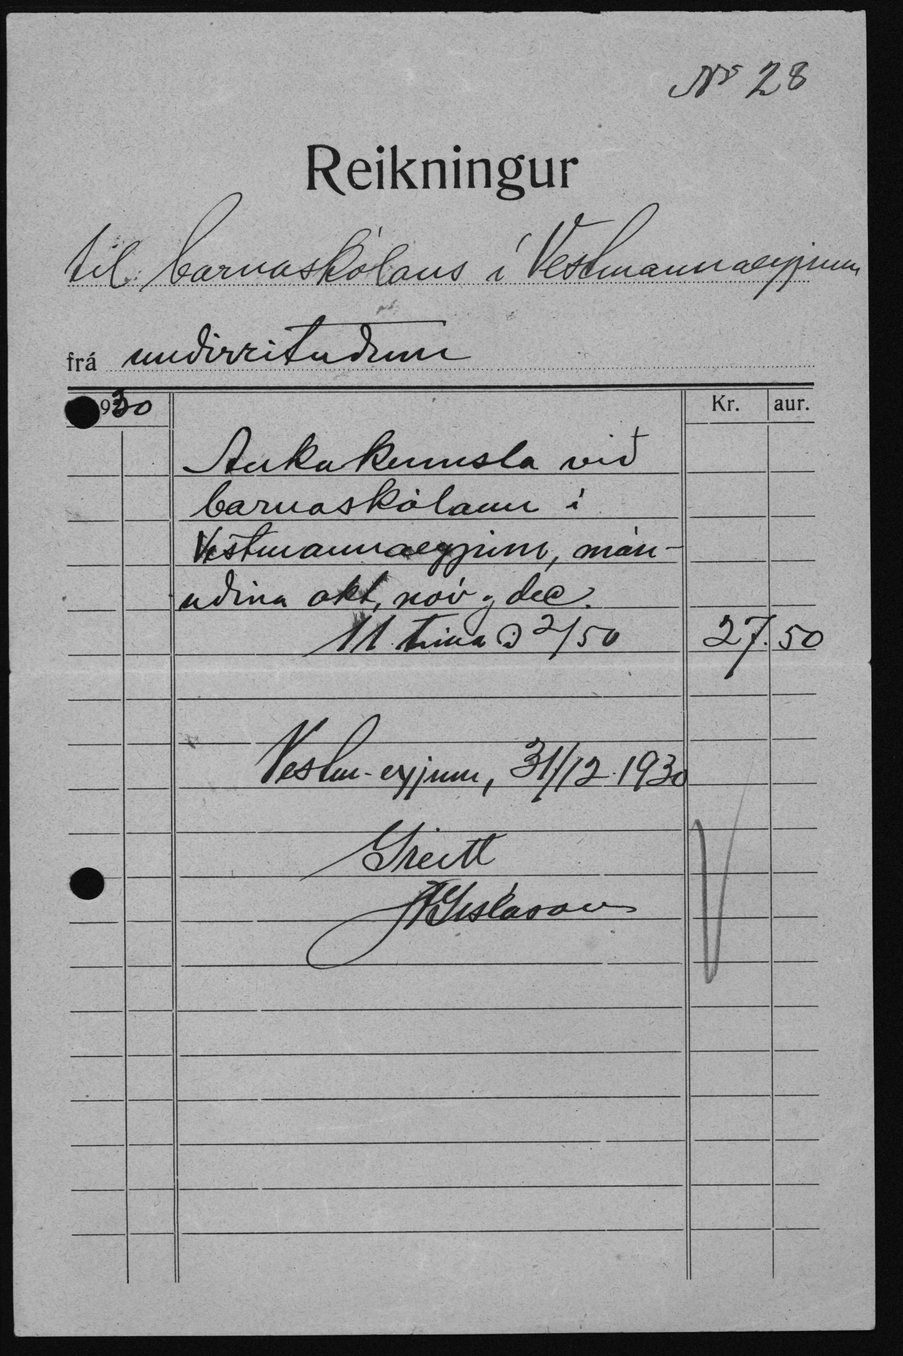 No 28
Reikningur
til barnaskólans í Vestmannaeyjum
frá undirrituðum
1930
Kr. aur.
Aukakennsla við
barnaskólann í
Vestmannaeyjum, mán-
uðina okt, nóv og dec.
11 tíma á 2/50 27.50
Vestm-eyjum, 31/12 1930
Greitt
Gíslason